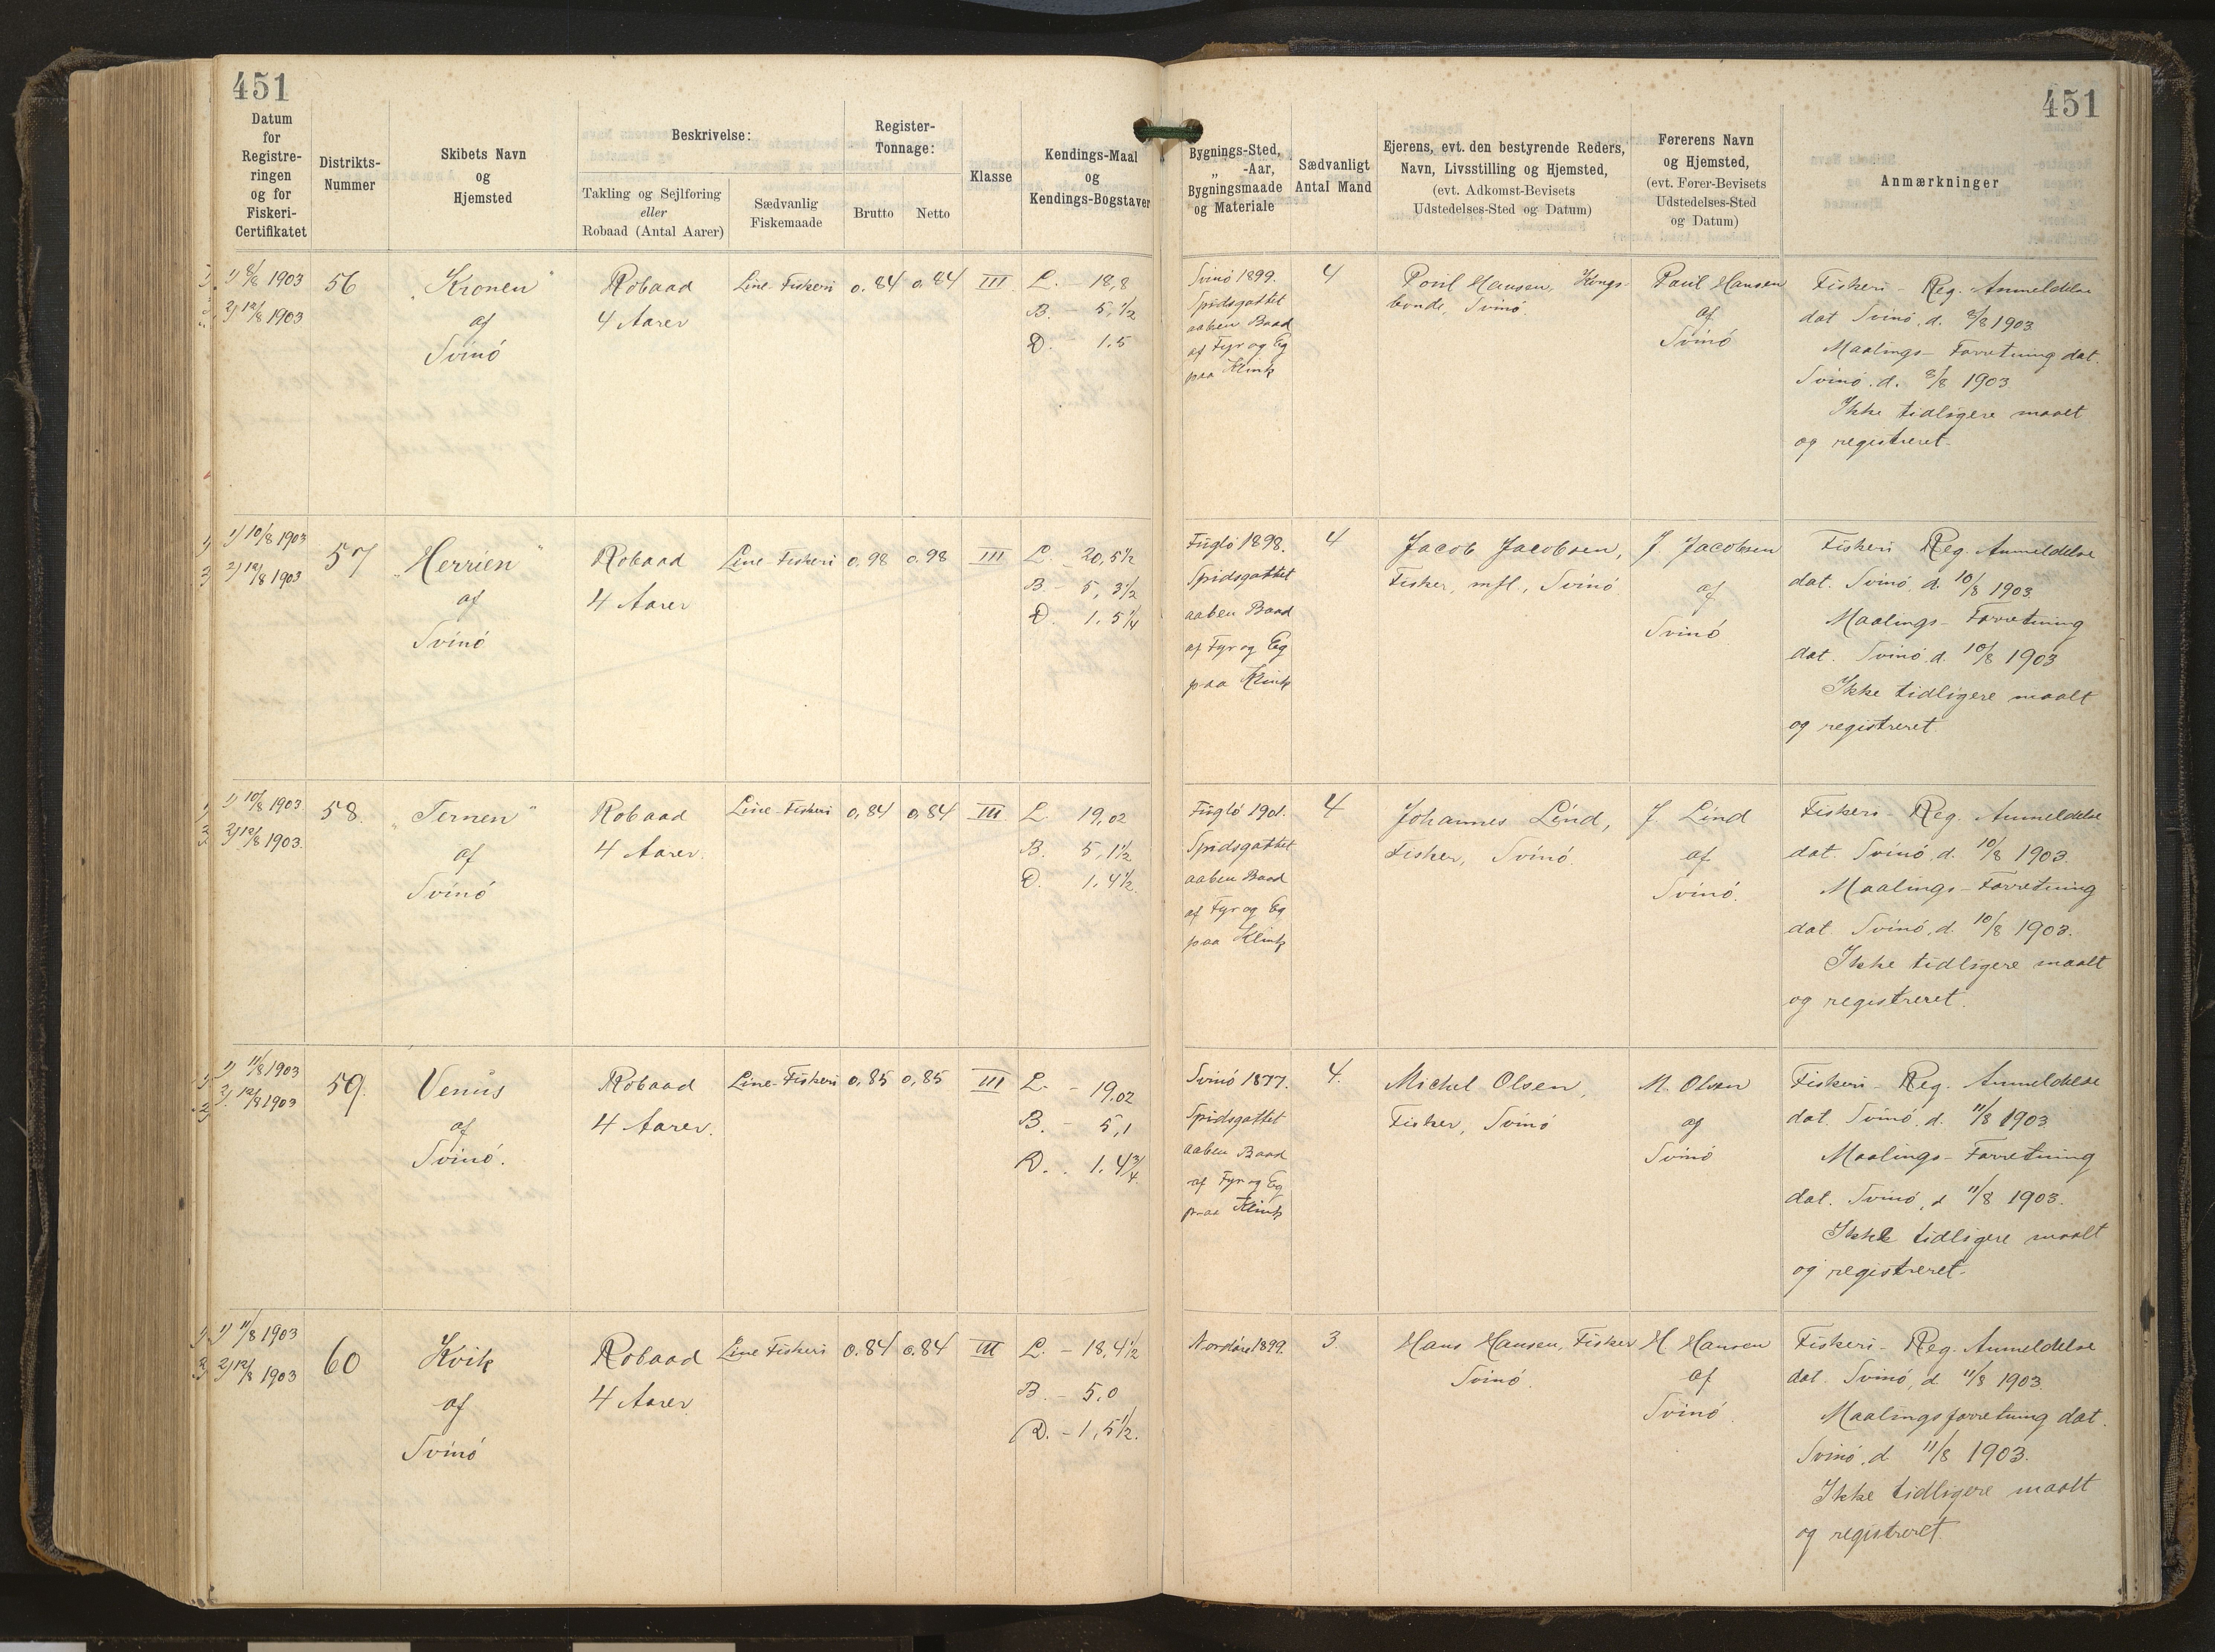 451
451
Datum
for
Registre-
ringen
og for
Fiskeri-
Certifikatet
Distrikts-
Nummer
Skibets Navn
og
Hjemsted
Beskrivelse:
Takling og Sejlføring
eller
Robaad (Antal Aarer)
Sædvanlig
Fiskemaade
Register-
Tonnage:
Brutto
Netto
Klasse
Kendings-Maal
og
Kendings-Bogstaver
Bygnings-Sted,
„ -Aar,
Bygningsmaade
og Materiale
Sædvanligt
Antal Mand
Ejerens, evt. den bestyrende Reders,
Navn, Livsstilling og Hjemsted,
(evt. Adkomst-Bevisets
Udstedelses-Sted og Datum)
Førerens Navn
og Hjemsted,
(evt. Fører-Bevisets
Udstedelses-Sted
og Datum)
Anmærkninger
1) 8/8 1903
2) 12/8 1903
56
„Kronen"
af
Svinó
Robaad
4 Aarer
Line-Fiskeri
0.84
0.84
III
L. - 18,8
B. - 5,1/2
D. 1.5
Svinó 1899.
Spidsgattet
aaben Baad
af Fyr og Eg
paa Klink
4
Poul Hansen, Kongs-
bonde, Svinó.
Poul Hansen
af
Svinó
Fiskeri-Reg. Anmeldelse
dat Svinó, d. 8/8 1903
Maalings-Forretning dat.
Svinó. d. 8/8 1903
Ikke tidligere maalt
og registreret.
1) 10/8 1903
2) 12/8 1903
57
„Herrien"
af
Svinó
Robaad
4 Aarer
Line Fiskeri
0.98
0.98
III
L. - 20,5 1/2
B. - 5,3 1/2
D. 1.5 1/4
Fugló 1898.
Spidsgattet
aaben Baad
af Fyr og Eg
paa Klink
4
Jacob Jacobsen,
Fisker, mfl., Svinó
J. Jacobsen
af
Svinó
Fiskeri Reg. Anmeldelse
dat. Svinó, d. 10/8 1903.
Maalings-Forretning
dat. Svinó d. 10/8 1903
Ikke tidligere maalt
og registreret
1) 10/8 1903
2) 12/8 1903.
58.
„Ternen"
af
Svinó
Robaad
4 Aarer.
Line-Fiskeri
0,84
0,84
III
L. 19,02
B. 5,1 1/2
D. 1.4 1/2.
Fugló 1901.
Spidsgattet
aaben Baad
af Fyr og Eg
paa Klink
4
Johannes Lind,
Fisker, Svinó.
J. Lind
af
Svinó.
Fiskeri-Reg. Anmeldelse
dat. Svinó, d. 10/8 1903.
Maalings-Forretning
dat. Svinó, d. 10/8 1903.
Ikke tidligere maalt
og registreret.
1) 11/8 1903
2) 12/8 1903
59.
Venus
af
Svinó.
Robaad
4 Aarer.
Line-Fiskeri
0,85
0,85
III
L. - 19.02
B. - 5,1
D. . 1.4 3/4.
Svinó 1877.
Spidsgattet
aaben Baad
af Fyr og Eg
paa Klink
4.
Michel Olsen,
Fisker, Svinó
M. Olsen
af
Svinó
Fiskeri-Reg. Anmeldelse
dat. Svinó, d. 11/8 1903
Maalings-Forretning
dat. Svinó, d 11/8 1903.
Ikke tidligere maalt
og registreret.
1) 11/8 1903
2) 12/8 1903
60
Kvik
af
Svinó
Robaad
4 Aarer
Line Fiskeri
0.84
0.84
III
L. - 18,4 1/2
B. - 5,0
D. - 1,5 1/2.
1899.
3
Hans Hansen, Fisker
Svinó.
H Hansen
af
Svinó.
Fiskeri-Reg. Anmeldelse
dat. Svinó, d. 11/8 1903.
Maalingsforretning dat.
Svinó, d 11/8 1903.
Ikke tidligere maalt
og registreret.